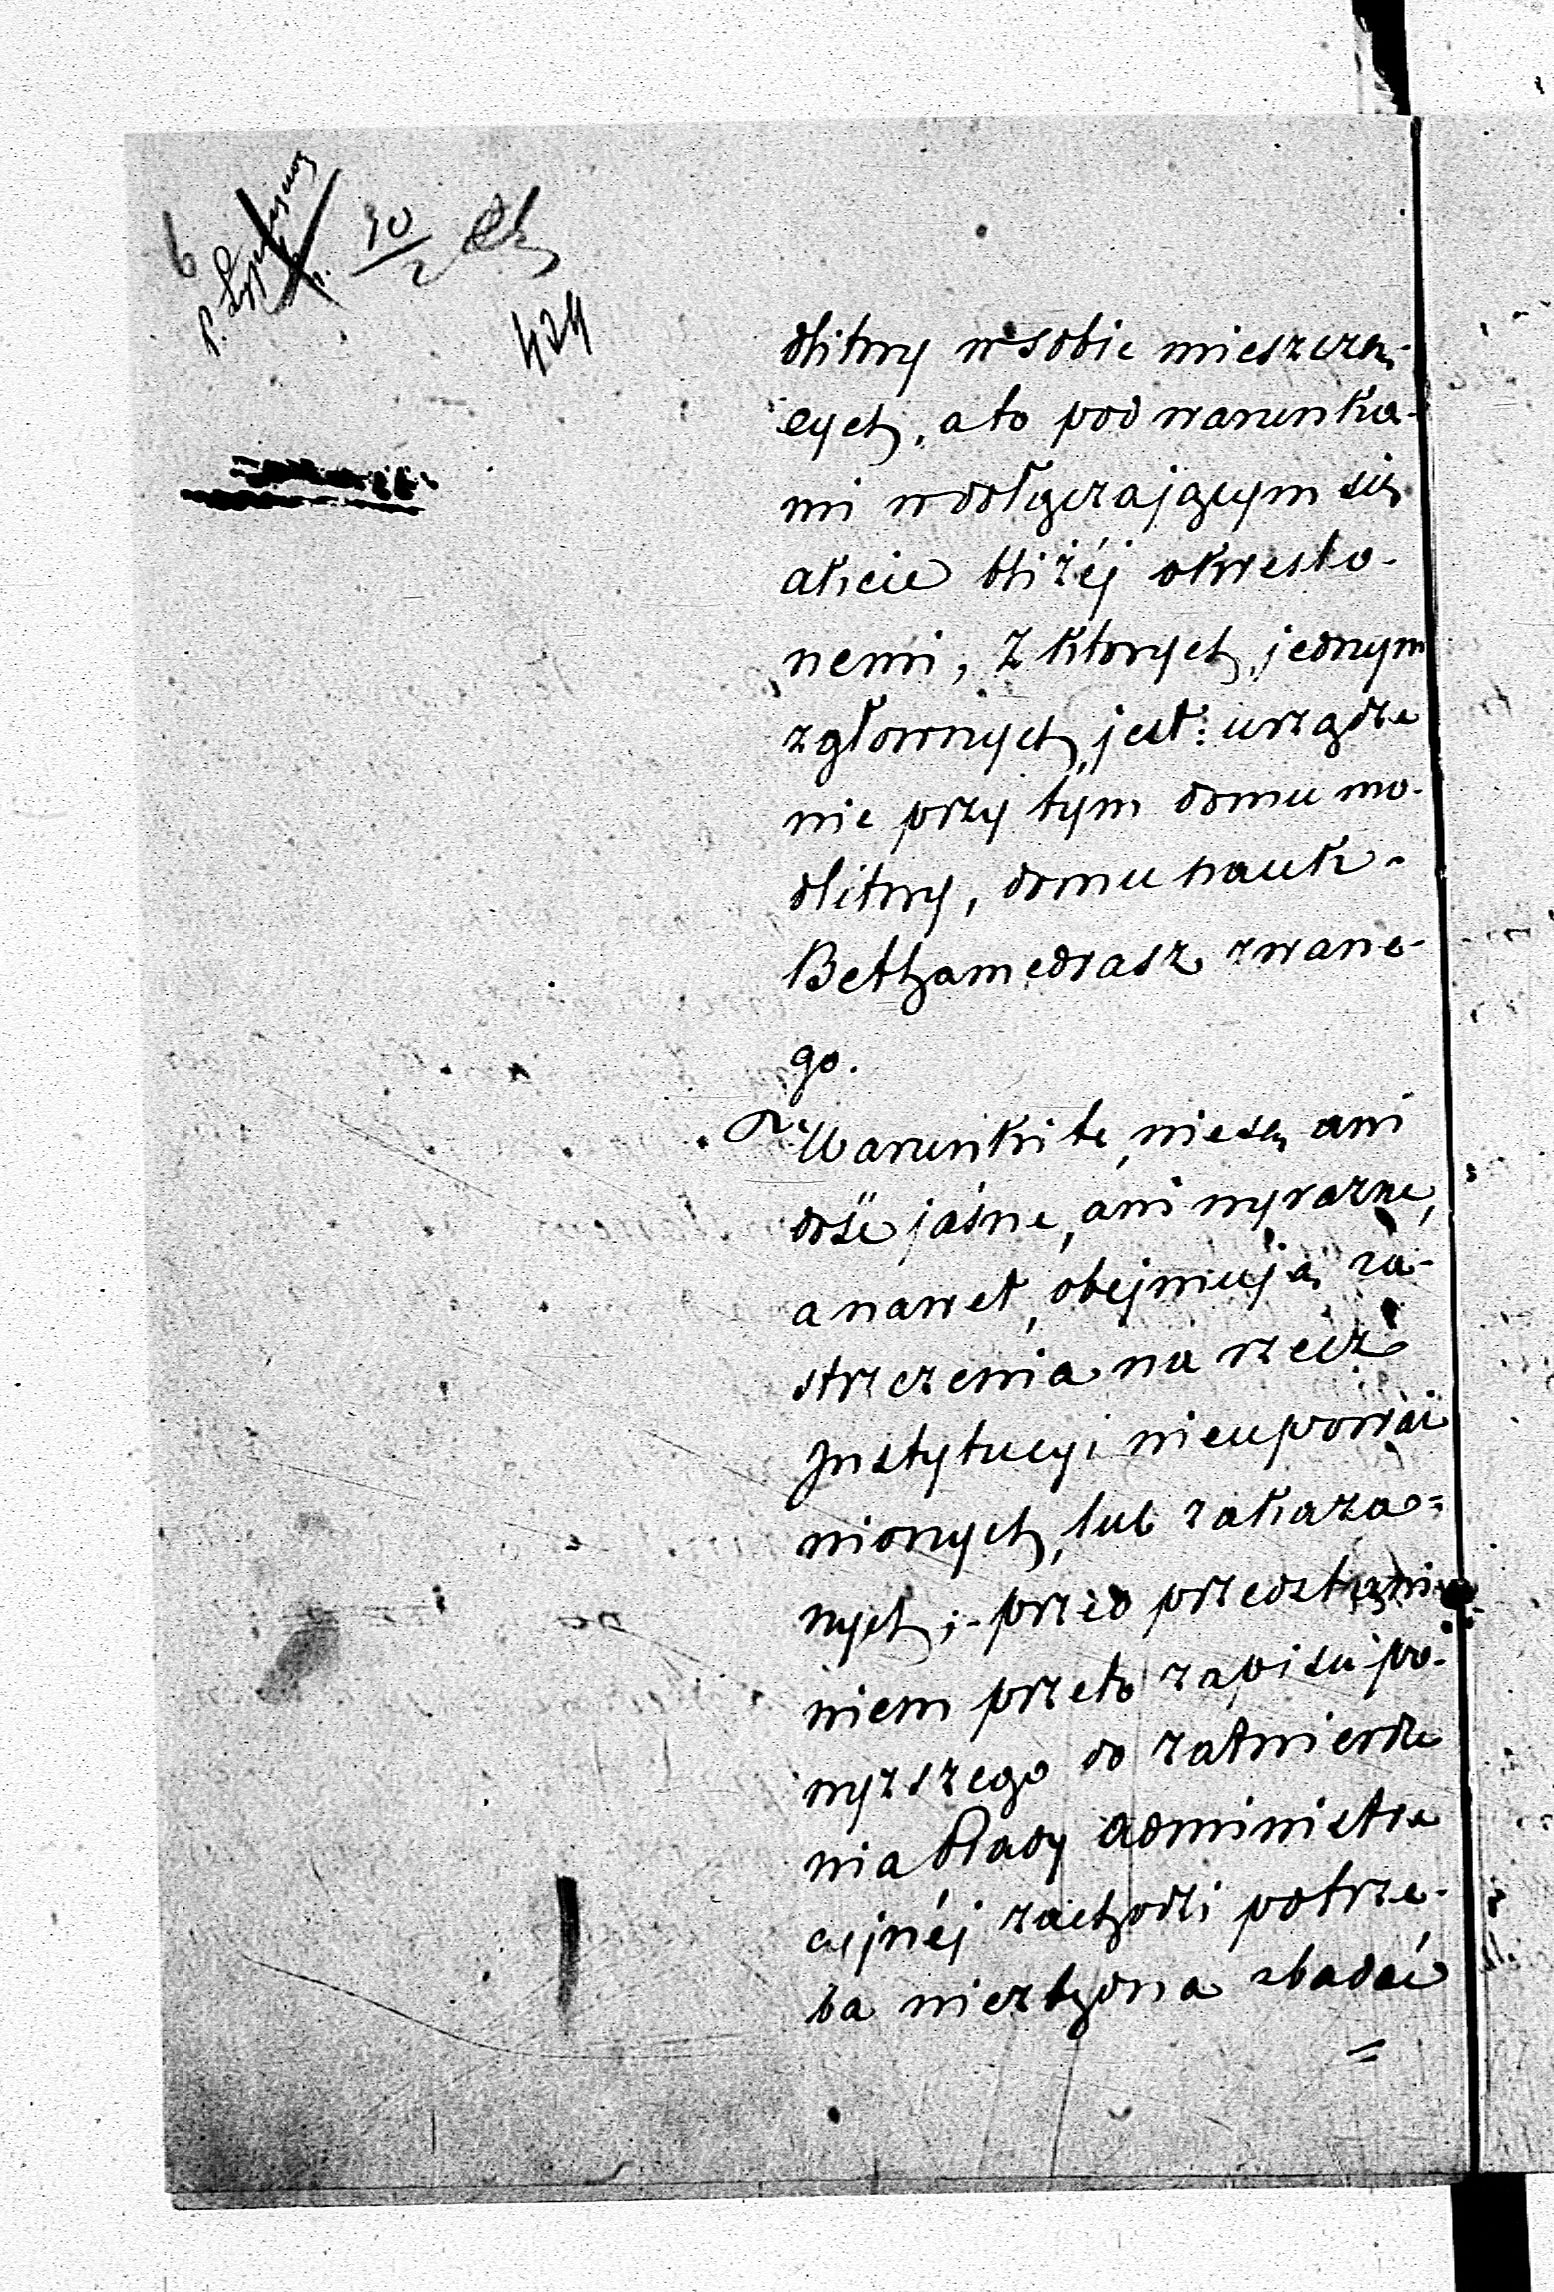 6
10/2
424
dlitwy w sobie mieszczą-
cych, a to pod warunka-
mi w dołączającym się
akcie bliżéj okreslo-
nemi, z ktorych, jednym
z głownych jest: urządze
nie przy tym domu mo-
dlitwy, domu nauk-
Bethamedrasz zwane-
go.
Warunki te, nie są ani
dość jasne, ani wyrazne,
a nawet, obejmują za-
strzezenia na rzecz
Instytucyi nieupoważ
nionych, lub zakaza=
nych; - przed przedstawie-
niem przeto zapisu po-
wyzszego do zatwierdze
nia Rady Administra
cyjnéj zachodzi potrze-
ba niezbędna zbadać